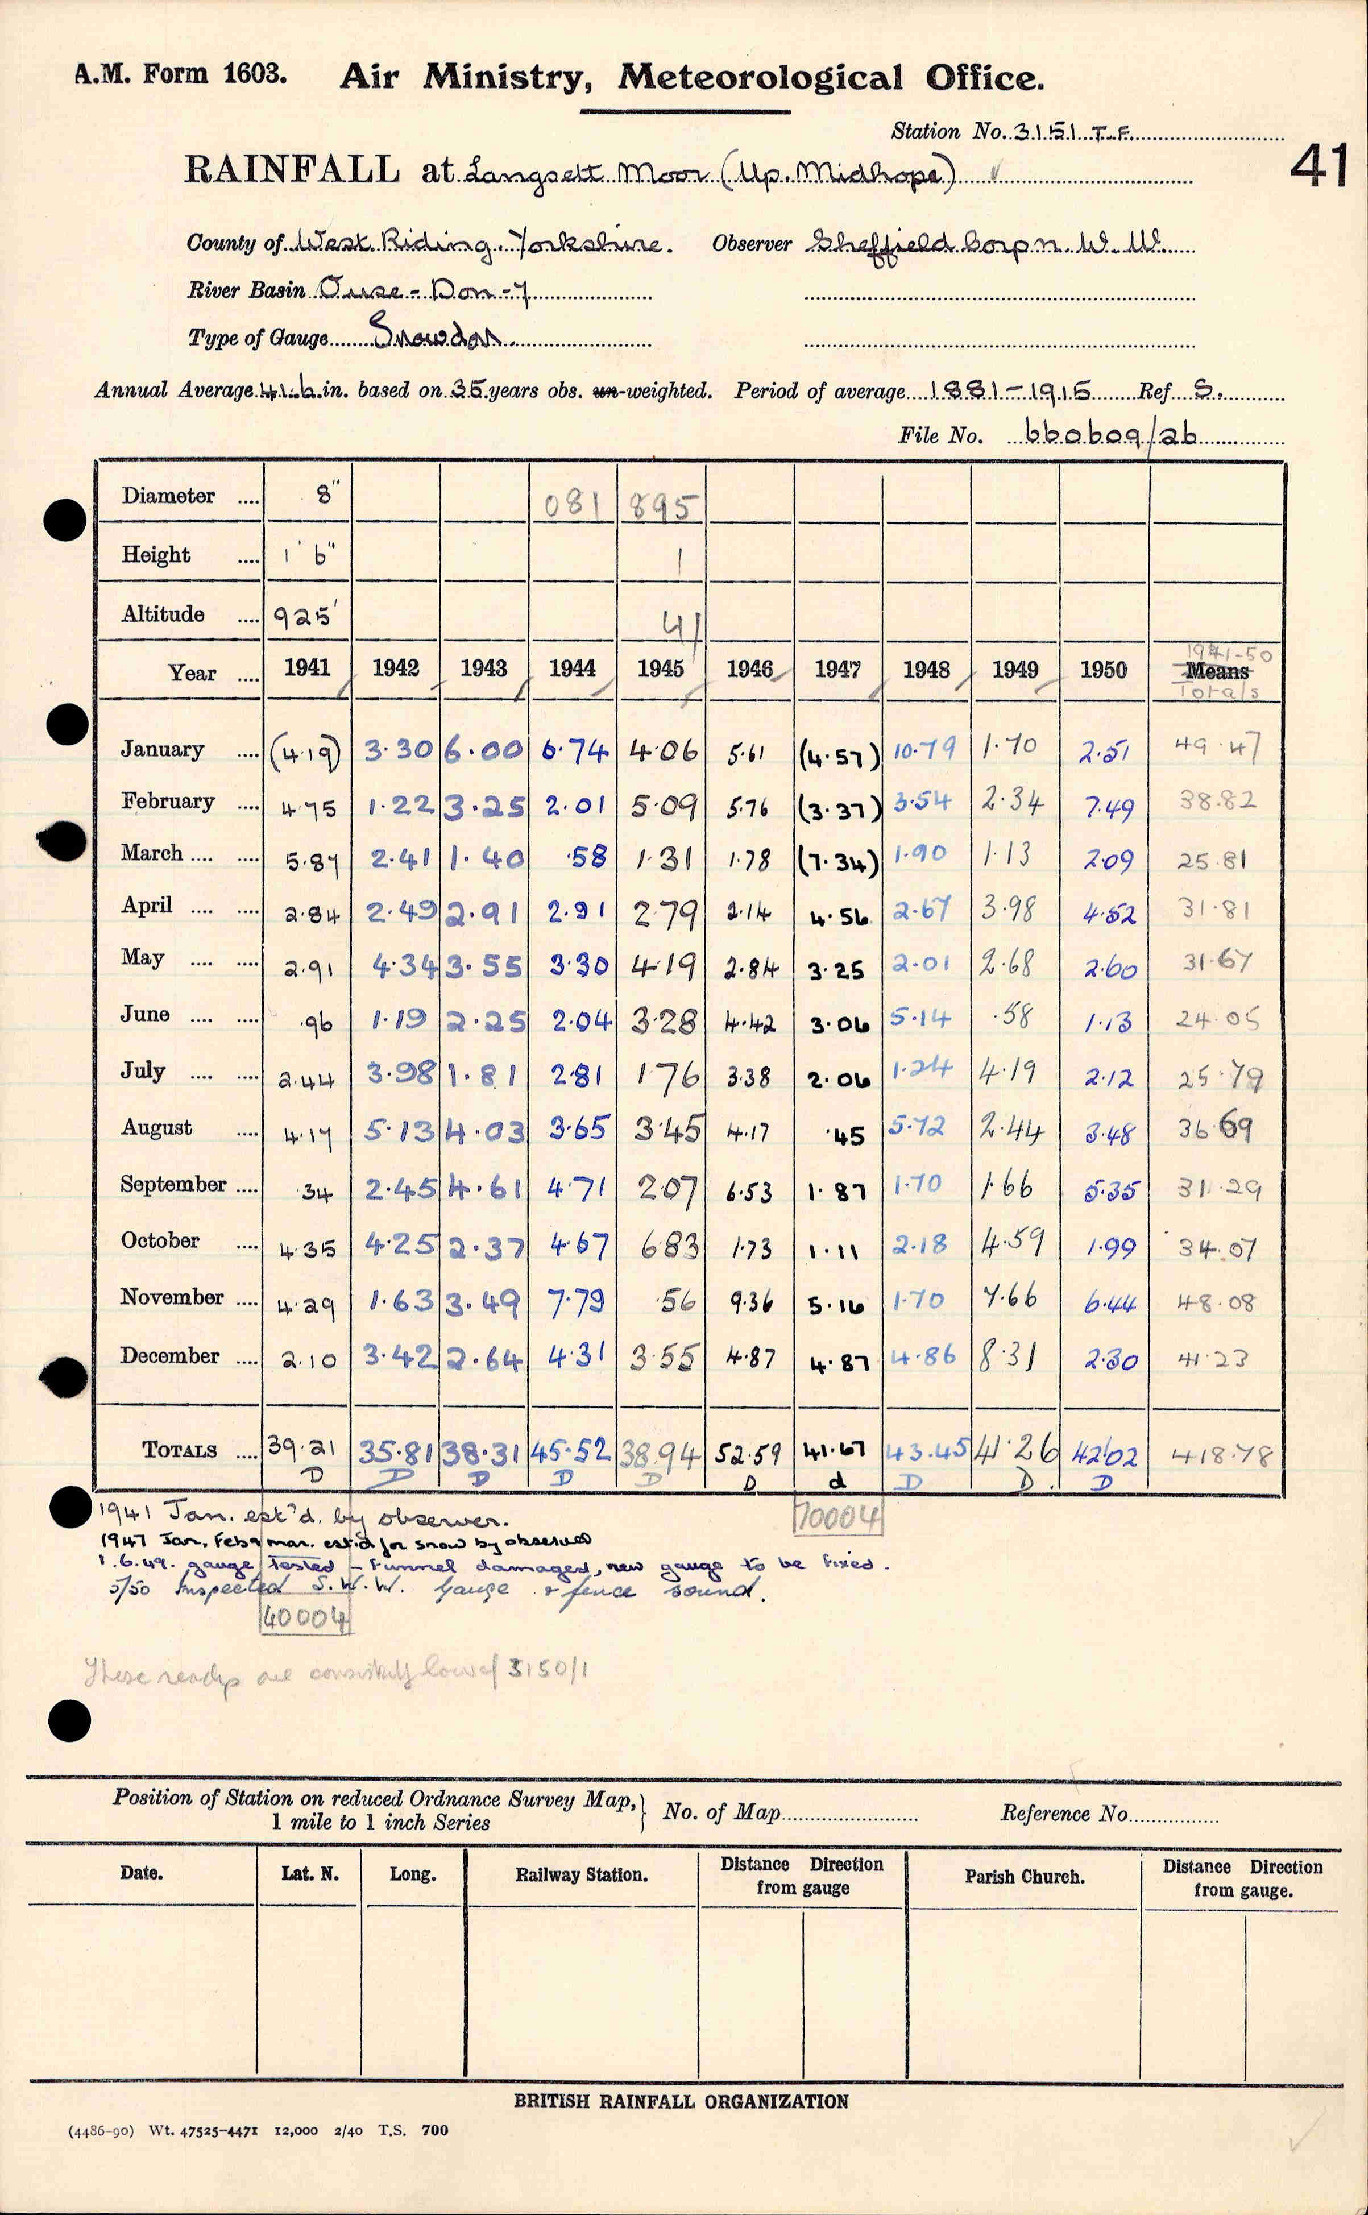 A.M. Form 1603. Air Ministry, Meteorological Office.
Station No. 3151 T.F.
41
RAINFALL at Langsett Moor (Up. Midhope)
County of West Riding, Yorkshire. Observer Sheffield Corpn. W. W.
River Basin Ouse - Don - 7
Type of Gauge Snowdon.
Annual Average 41.6 in. based on 35 years obs. un-weighted. Period of average 1881-1915 Ref S.
File No. 660609/26
Diameter .... 8" 081 895
Height .... 1' 6" 1
Altitude .... 925' 41
Year .... 1941 1942 1943 1944 1945 1946 1947 1948 1949 1950 1941-50 Means Totals
January .... (4.19) 3.30 6.00 6.74 4.06 5.61 (4.57) 10.79 1.70 2.51 49.47
February .... 4.75 1.22 3.25 2.01 5.09 5.76 (3.37) 3.54 2.34 7.49 38.82
March .... .... 5.87 2.41 1.40 .58 1.31 1.78 (7.34) 1.90 1.13 2.09 25.81
April .... .... 2.84 2.49 2.91 2.91 2.79 2.14 4.56 2.67 3.98 4.52 31.81
May .... .... 2.91 4.34 3.55 3.30 4.19 2.84 3.25 2.01 2.68 2.60 31.67
June .... .... .96 1.19 2.25 2.04 3.28 4.42 3.06 5.14 .58 1.13 24.05
July .... .... 2.44 3.98 1.81 2.81 1.76 3.38 2.06 1.24 4.19 2.12 25.79
August .... 4.17 5.13 4.03 3.65 3.45 4.17 .45 5.72 2.44 3.48 36.69
September .... .34 2.45 4.61 4.71 2.07 6.53 1.87 1.70 1.66 5.35 31.29
October .... 4.35 4.25 2.37 4.67 6.83 1.73 1.11 2.18 4.59 1.99 34.07
November .... 4.29 1.63 3.49 7.79 .56 9.36 5.16 1.70 7.66 6.44 48.08
December .... 2.10 3.42 2.64 4.31 3.55 4.87 4.87 4.86 8.31 2.30 41.23
TOTALS .... 39.21 35.81 38.31 45.52 38.94 52.59 41.67 43.45 41.26 42.02 418.78
D D D D D D d D D. D
1941 Jan. est'd. by observer. 70004
1947 Jan, Feb & mar. est'd for snow by observer
1.6.49. gauge tested - Funnel damaged, new gauge to be fixed.
5/50 Inspected S.W.W. Gauge & fence sound.
40004
These readgs are consistently lower 3150/1
Position of Station on reduced Ordnance Survey Map, 1 mile to 1 inch Series } No. of Map Reference No.
Date. Lat. N. Long. Railway Station. Distance Direction from gauge Parish Church. Distance Direction from gauge.
BRITISH RAINFALL ORGANIZATION
(4486-90) Wt. 47525-4471 12,000 2/40 T.S. 700